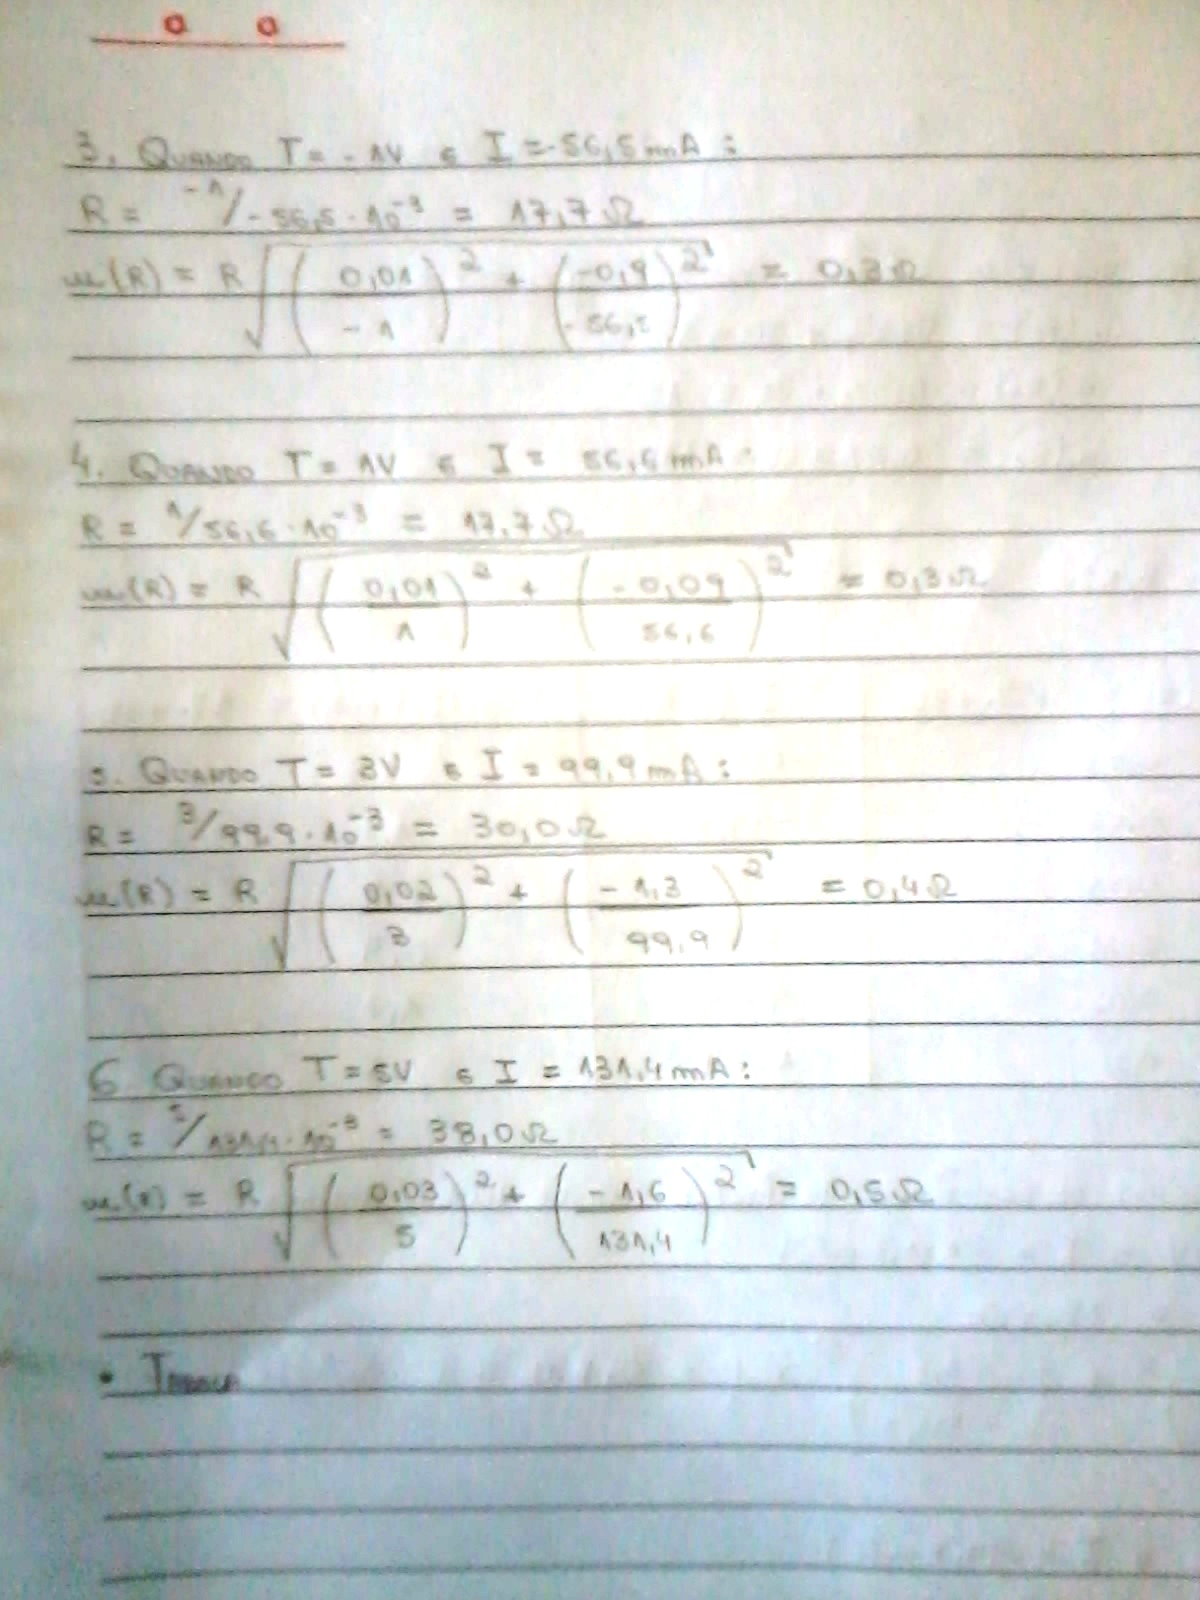 3. QUANDO T = -1V E I = -56,5 mA:
R = -1/-56,5·10⁻³ = 17,7Ω
u(R) = R √((0,01/-1)² + (-0,9/-56,5)²) = 0,3Ω
4. QUANDO T = 1V E I = 56,6 mA:
R = 1/56,6·10⁻³ = 17,7Ω
u(R) = R √((0,01/1)² + (-0,09/56,6)²) = 0,3Ω
5. QUANDO T = 3V E I = 99,9 mA:
R = 3/99,9·10⁻³ = 30,0Ω
u(R) = R √((0,02/3)² + (-1,3/99,9)²) = 0,4Ω
6 QUANDO T = 5V E I = 131,4 mA:
R = 5/131,4·10⁻³ = 38,0Ω
u(R) = R √((0,03/5)² + (-1,6/131,4)²) = 0,5Ω
• TABELA